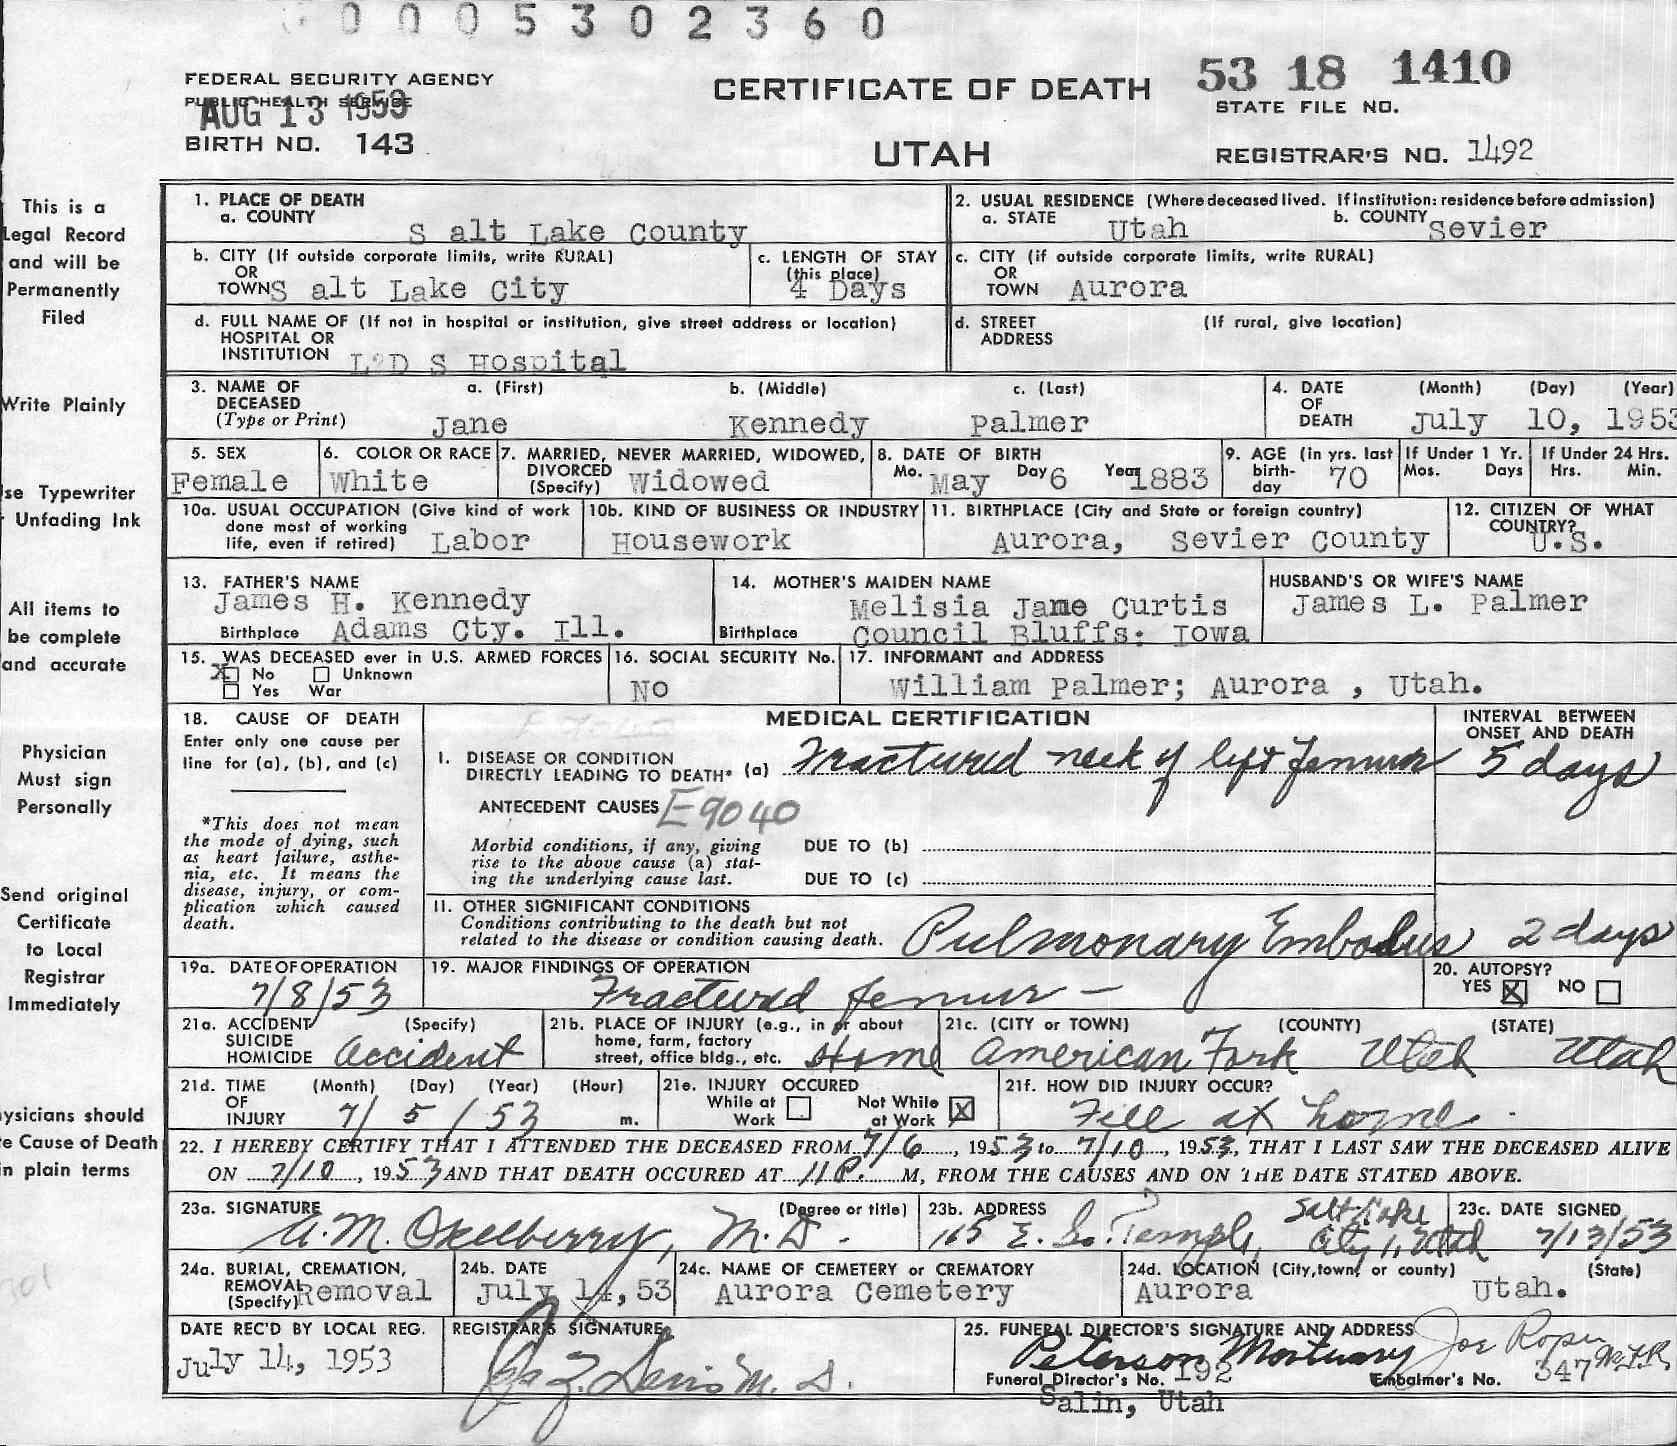 0 0 0 5 3 0 2 3 6 0
FEDERAL SECURITY AGENCY
PUBLIC HEALTH SERVICE
AUG 13 1953
BIRTH NO. 143
CERTIFICATE OF DEATH
UTAH
53 18 1410
STATE FILE NO.
REGISTRAR'S NO. 1492
This is a
Legal Record
and will be
Permanently
Filed
Write Plainly
se Typewriter
Unfading Ink
All items to
be complete
and accurate
Physician
Must sign
Personally
Send original
Certificate
to Local
Registrar
Immediately
ysicians should
e Cause of Death
in plain terms
1. PLACE OF DEATH
a. COUNTY
S alt Lake County
2. USUAL RESIDENCE (Where deceased lived. If institution: residence before admission)
a. STATE Utah b. COUNTY Sevier
b. CITY (If outside corporate limits, write RURAL)
OR
TOWN S alt Lake City
c. LENGTH OF STAY
(this place)
4 Days
c. CITY (if outside corporate limits, write RURAL)
OR
TOWN Aurora
d. FULL NAME OF (If not in hospital or institution, give street address or location)
HOSPITAL OR
INSTITUTION L D S Hospital
d. STREET (If rural, give location)
ADDRESS
3. NAME OF DECEASED (Type or Print)
a. (First) b. (Middle) c. (Last)
Jane Kennedy Palmer
4. DATE OF DEATH (Month) (Day) (Year)
July 10, 1953
5. SEX
Female
6. COLOR OR RACE
White
7. MARRIED, NEVER MARRIED, WIDOWED,
DIVORCED
(Specify) Widowed
8. DATE OF BIRTH
Mo. May Day 6 Year 1883
9. AGE (in yrs. last
birth-
day 70
If Under 1 Yr.
Mos. Days
If Under 24 Hrs.
Hrs. Min.
10a. USUAL OCCUPATION (Give kind of work
done most of working
life, even if retired) Labor
10b. KIND OF BUSINESS OR INDUSTRY
Housework
11. BIRTHPLACE (City and State or foreign country)
Aurora, Sevier County
12. CITIZEN OF WHAT
COUNTRY?
U.S.
13. FATHER'S NAME
James H. Kennedy
Birthplace Adams Cty. Ill.
14. MOTHER'S MAIDEN NAME
Melisia Jane Curtis
Birthplace Council Bluffs: Iowa
HUSBAND'S OR WIFE'S NAME
James L. Palmer
15. WAS DECEASED ever in U.S. ARMED FORCES
X No Unknown
Yes War
16. SOCIAL SECURITY No.
No
17. INFORMANT and ADDRESS
William Palmer; Aurora , Utah.
18. CAUSE OF DEATH
Enter only one cause per
line for (a), (b), and (c)
*This does not mean
the mode of dying, such
as heart failure, asthe-
nia, etc. It means the
disease, injury, or com-
plication which caused
death.
MEDICAL CERTIFICATION
INTERVAL BETWEEN
ONSET AND DEATH
I. DISEASE OR CONDITION
DIRECTLY LEADING TO DEATH* (a) Fractured neck of left femur 5 days
ANTECEDENT CAUSES E9040
Morbid conditions, if any, giving
rise to the above cause (a) stat-
ing the underlying cause last.
DUE TO (b)
DUE TO (c)
11. OTHER SIGNIFICANT CONDITIONS
Conditions contributing to the death but not
related to the disease or condition causing death.
Pulmonary Embolus 2 days
19a. DATE OF OPERATION
7/8/53
19. MAJOR FINDINGS OF OPERATION
Fractured femur -
20. AUTOPSY?
YES X NO
21a. ACCIDENT (Specify)
SUICIDE
HOMICIDE Accident
21b. PLACE OF INJURY (e.g., in or about
home, farm, factory
street, office bldg., etc. Home
21c. (CITY or TOWN) (COUNTY) (STATE)
American Fork Utah Utah
21d. TIME (Month) (Day) (Year) (Hour)
OF
INJURY 7/ 5 / 53 m.
21e. INJURY OCCURED
While at Work Not While at Work X
21f. HOW DID INJURY OCCUR?
Fell at home.
22. I HEREBY CERTIFY THAT I ATTENDED THE DECEASED FROM 7/6, 1953 to 7/10, 1953, THAT I LAST SAW THE DECEASED ALIVE
ON 7/10, 1953 AND THAT DEATH OCCURED AT 11 P. M, FROM THE CAUSES AND ON THE DATE STATED ABOVE.
23a. SIGNATURE (Degree or title)
A. M. Okelberry, M.D.
23b. ADDRESS
115 E. So. Temple, Salt Lake City 1, Utah
23c. DATE SIGNED
7/13/53
24a. BURIAL, CREMATION,
REMOVAL
(Specify) Removal
24b. DATE
July 14, 53
24c. NAME OF CEMETERY or CREMATORY
Aurora Cemetery
24d. LOCATION (City, town, or county) (State)
Aurora Utah.
DATE REC'D BY LOCAL REG.
July 14, 1953
REGISTRAR'S SIGNATURE
M. D.
25. FUNERAL DIRECTOR'S SIGNATURE AND ADDRESS
Peterson Mortuary Joe Roper
Funeral Director's No. 192 Embalmer's No. 347
Salin, Utah